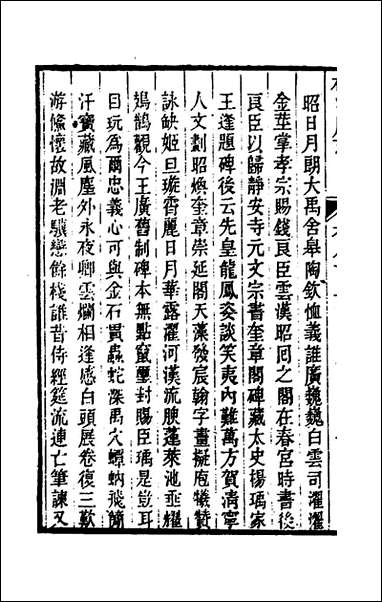 昭日月朗大禹舍皋陶欽恤義誰廣巍巍白雲司濯濯
金莖掌孝宗賜錢良臣雲漢昭回之閣在春宮時書後
良臣以歸靜安寺元文宗書奎章閣碑藏太史楊瑀家
王逢題碑後云先皇龍鳳姿談笑夷內難萬方賀清寧
人文劃昭煥奎章崇延閣天藻發宸翰字畫擬庖犧贊
詠缺姬旦璇霄麗日月華露濯河漢流腴蓬萊池垂耀
鳷鵲觀今王廣舊制碑本無點竄璽封賜臣瑀是豈耳
目玩為爾忠義心可與金石貫蟲蛇深禹穴蟬蚋飛簡
汗寶藏風塵外永夜卿雲爛相逢感白頭展卷復三歎
游鯈懷故淵老驥戀餘棧誰昔侍經筵流連亡筆諫又